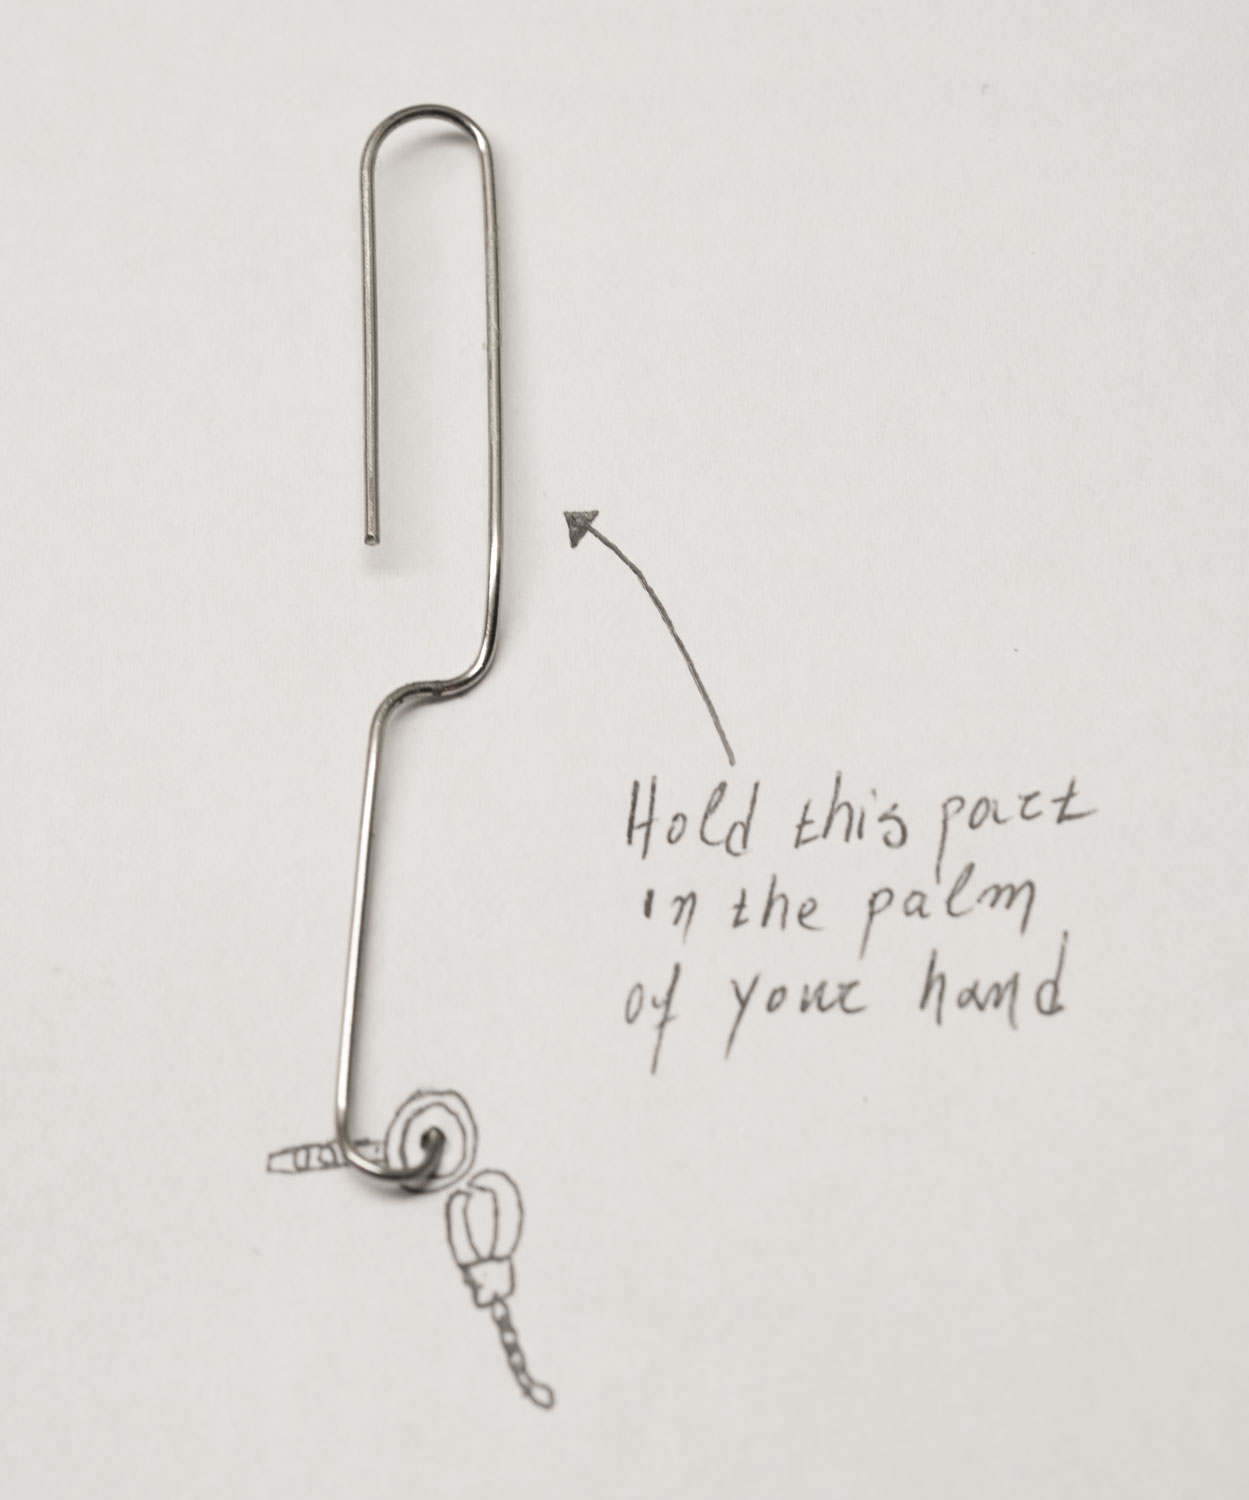 Hold this part
in the palm
of your hand